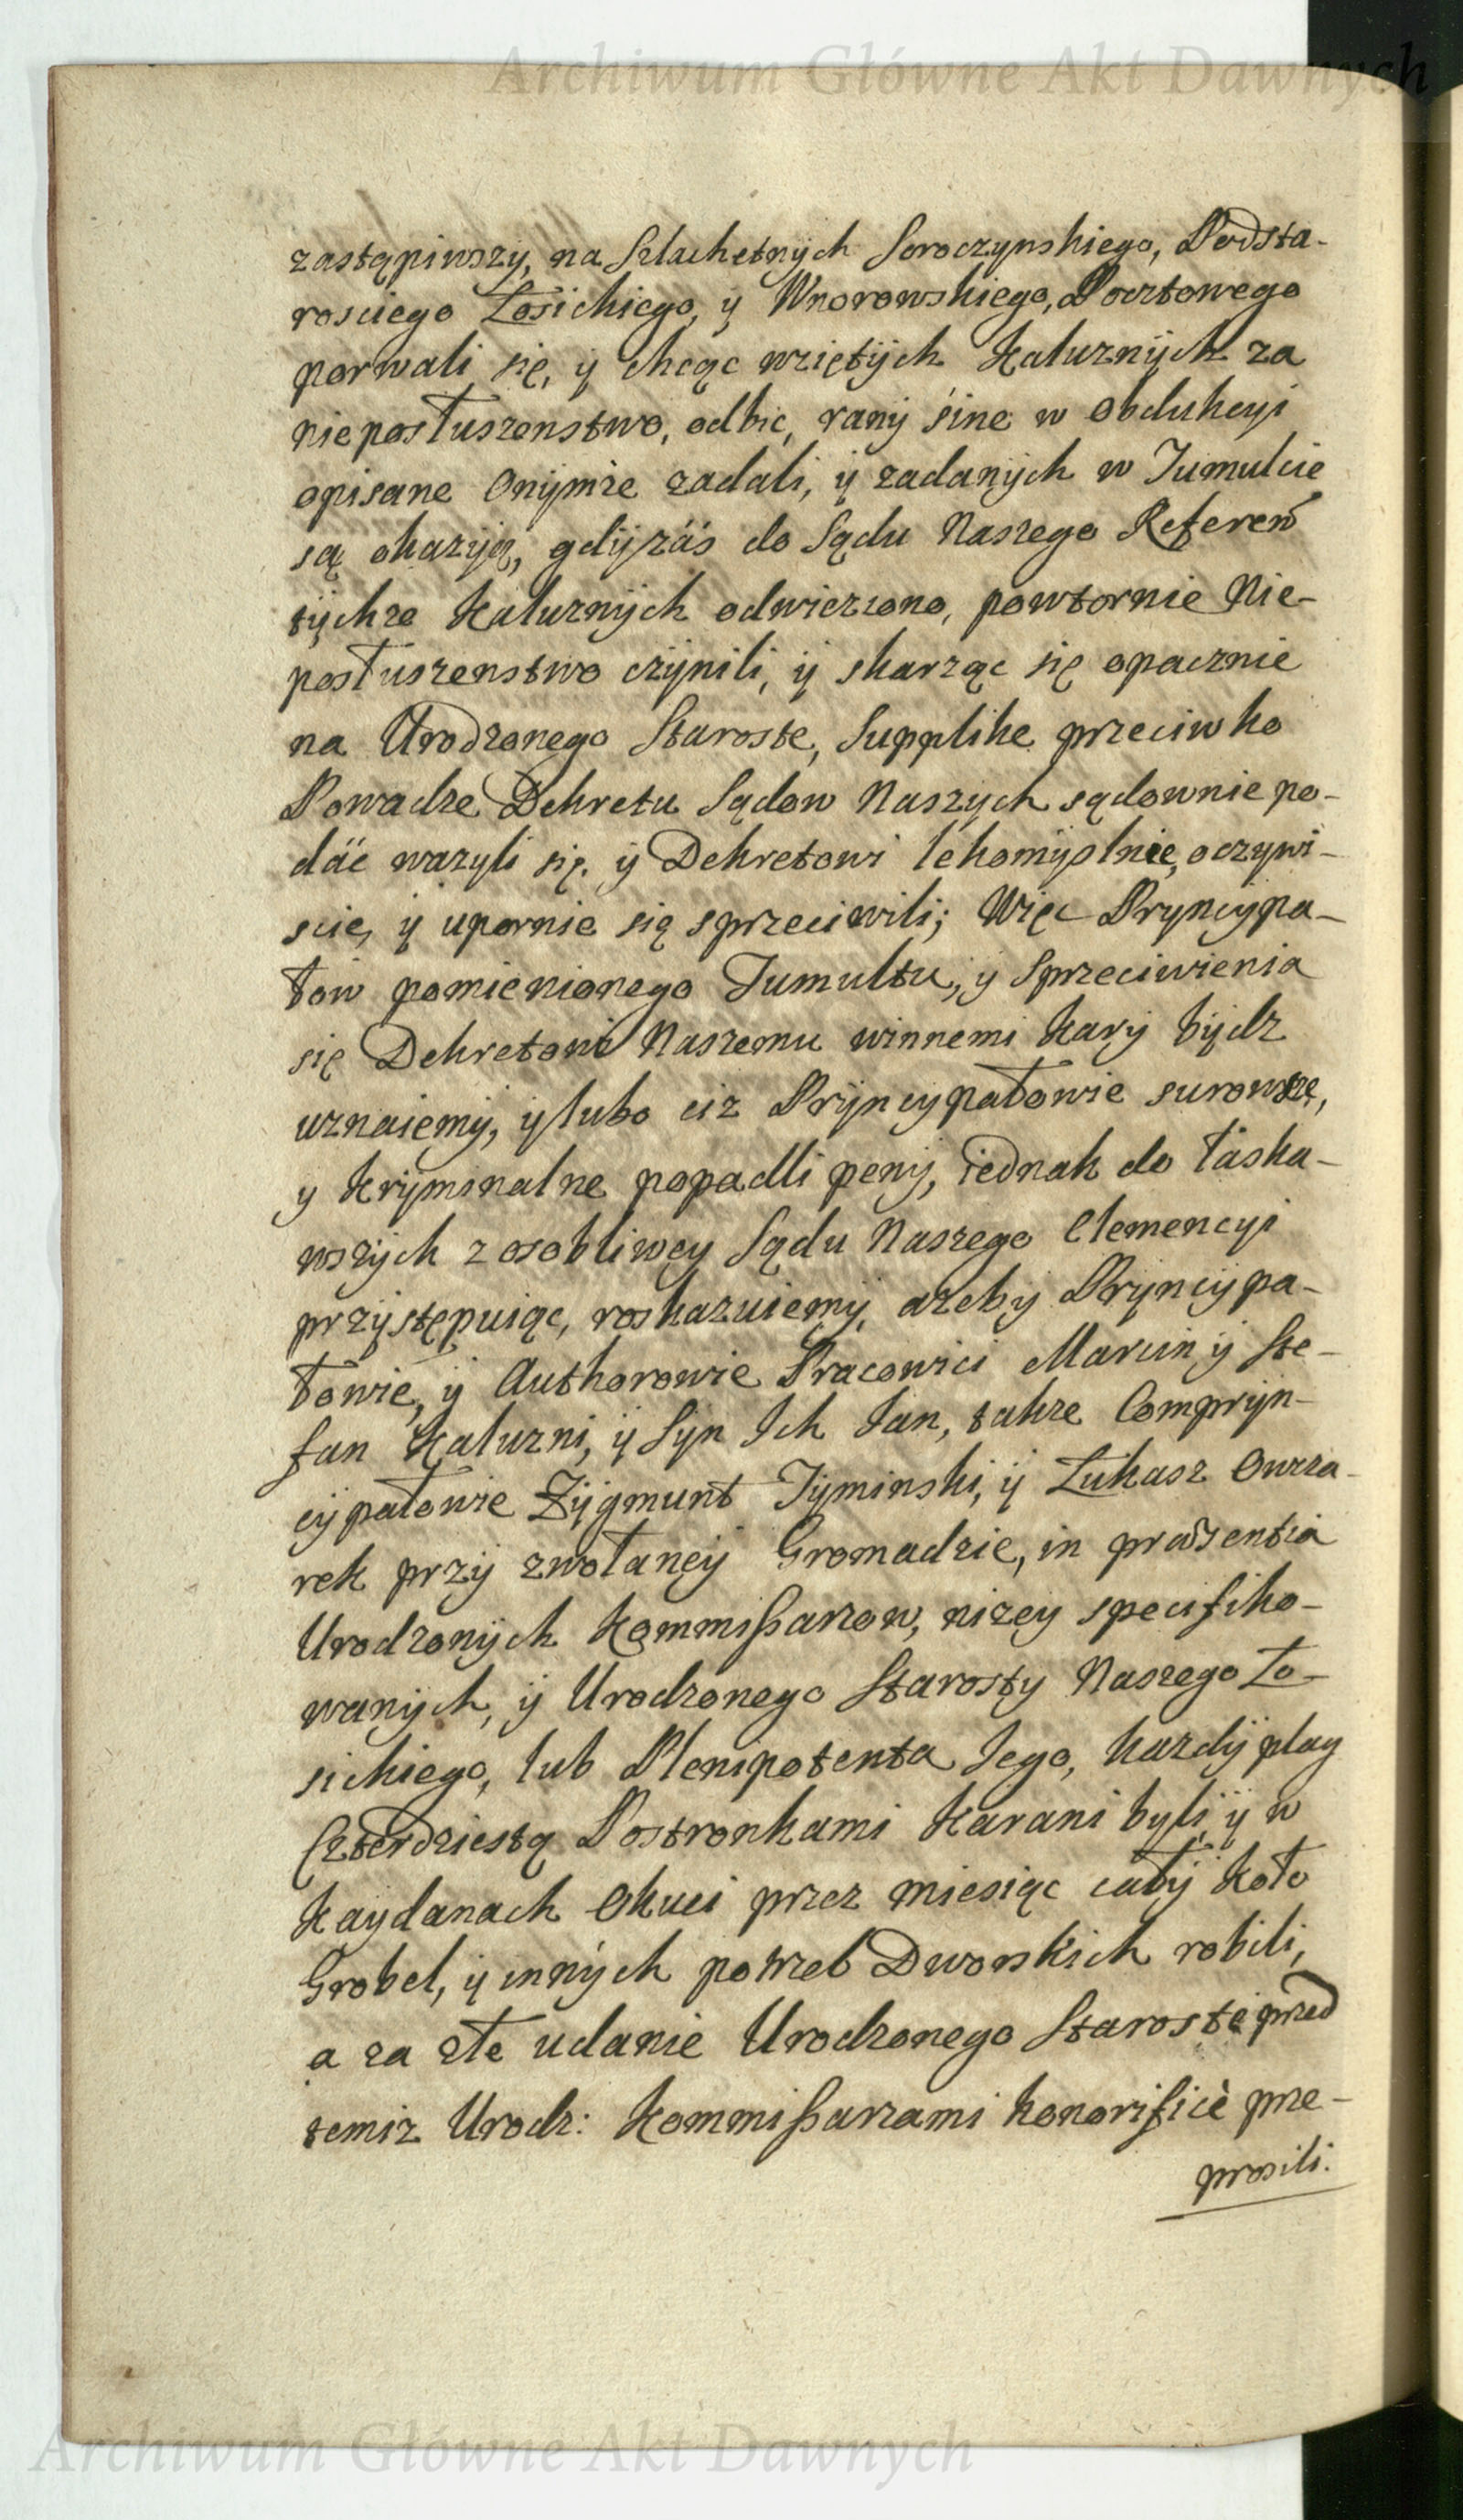 Archiwum Główne Akt Dawnych
zastąpiwszy, na Szlachetnych Soroczynskiego, Podsta-
rosciego Łosickiego, y Wnorowskiego, Pocztowego
porwali się, y chcąc wziętych Kaluznych za
nieposłuszenstwo, odbic, rany sine w Obdukcyi
opisane Onymże zadali, y zadanych w Tumulcie
są okazyą, gdy zás do Sądu Naszego Referen
tychze Kaluznych odwieziono, powtornie Nie-
posłuszenstwo czynili, y skarząc się opacznie
na Urodzonego Staroste, Supplike przeciwko
Powadze Dekretu Sądow Naszych sądownie po-
dać wazyli się, y Dekretowi lekomyslnie, oczywi-
scie, y upornie się sprzeciwili; Więc Pryncypa-
łow pomienionego Tumultu, y Sprzeciwienia
się Dekretowi Naszemu winnemi Kary bydz
uznaiemy, y lubo ciz Pryncypałowie surowsze,
y Kryminalne popadli peny, iednak do łáska-
wszych z osobliwey Sądu Naszego Clemencyi
przystępuiąc, roskazuiemy, ażeby Pryncypa-
łowie, y Authorowie Pracowici Marcin y Ste-
fan Kaluzni, y Syn Ich Jan, takze Compryn-
cypałowie Zygmunt Tyminski, y Łukasz Owcza-
rek przy zwołaney Gromadzie, in præsentia
Urodzonych Kommissarzow, nizey specifiko-
wanych, y Urodzonego Starosty Naszego Ło-
sickiego, lub Plenipotenta Jego, kazdy plag
Czterdziestą Postronkami Karani byli, y w
Kaydanach Okuci przez miesiąc cały koło
Grobel, y innych potrzeb Dworskich robili,
a za złe udanie Urodzonego Staroste przed
temiz Urodz: Kommissarzami honorificè prze-
prosili.
Archiwum Główne Akt Dawnych